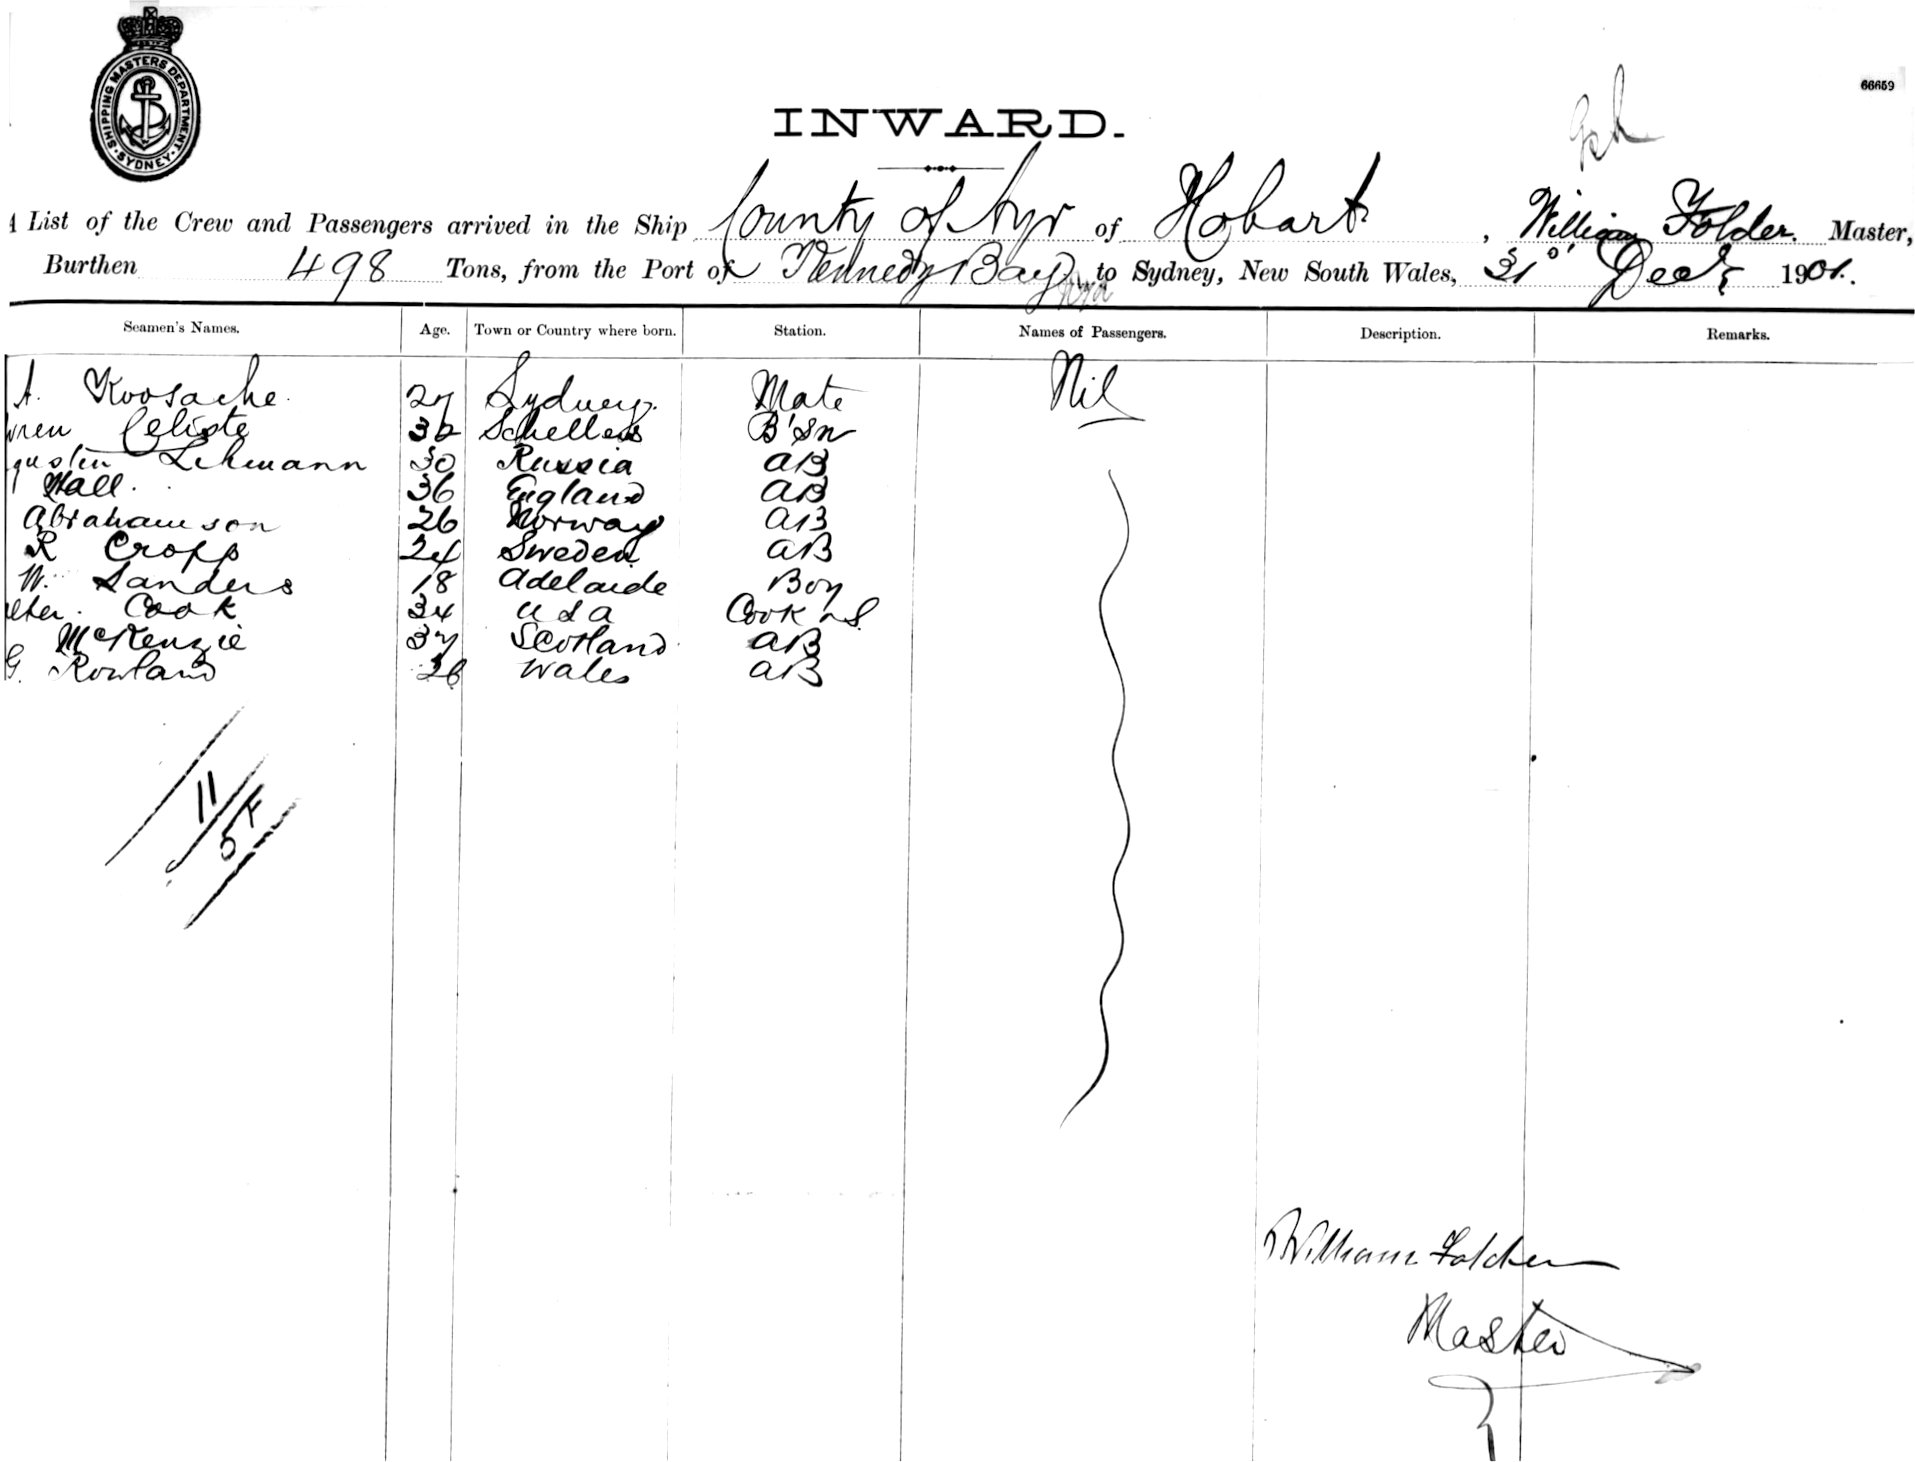 SHIPPING MASTERS DEPARTMENT
· SYDNEY ·
66659
INWARD.
List of the Crew and Passengers arrived in the Ship County of Ayr of Hobart, William Folder. Master,
Burthen 498 Tons, from the Port of Kennedy Bay to Sydney, New South Wales, 31 Decr 1901.
Seamen's Names. Age. Town or Country where born. Station. Names of Passengers. Description. Remarks.
A. 27 Sydney. Mate Nil
Celiste 32 B'Sn
Lehmann 30 Russia AB
Hall. 36 England AB
Abrahamson 26 Norway AB
R Cropp 24 Sweden AB
W. Sanders 18 Adelaide Boy
Cook 34 USA Cook & S.
McKenzie 37 Scotland AB
G. Rowland 26 Wales AB
11
5F
William Folder
Master